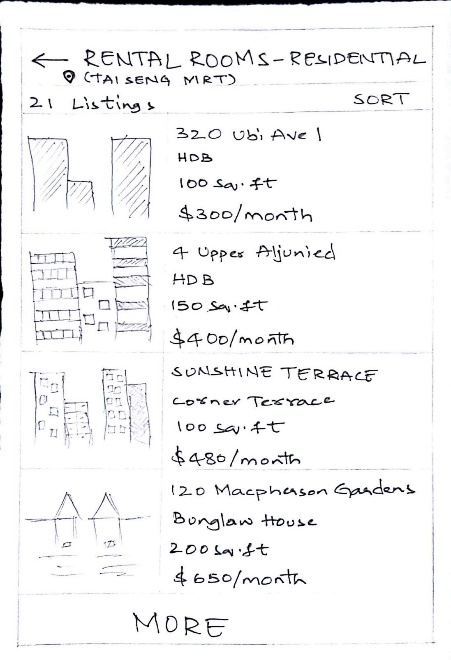 ← RENTAL ROOMS-RESIDENTIAL
(TAI SENG MRT)
21 Listings SORT
320 Ubi Ave 1
HDB
100 sq.ft
$300/month
4 Upper Aljunied
HDB
150 sq.ft
$400/month
SUNSHINE TERRACE
Corner Terrace
100 sq.ft
$480/month
120 Macpherson Gardens
Bunglaw House
200 sq.ft
$650/month
MORE